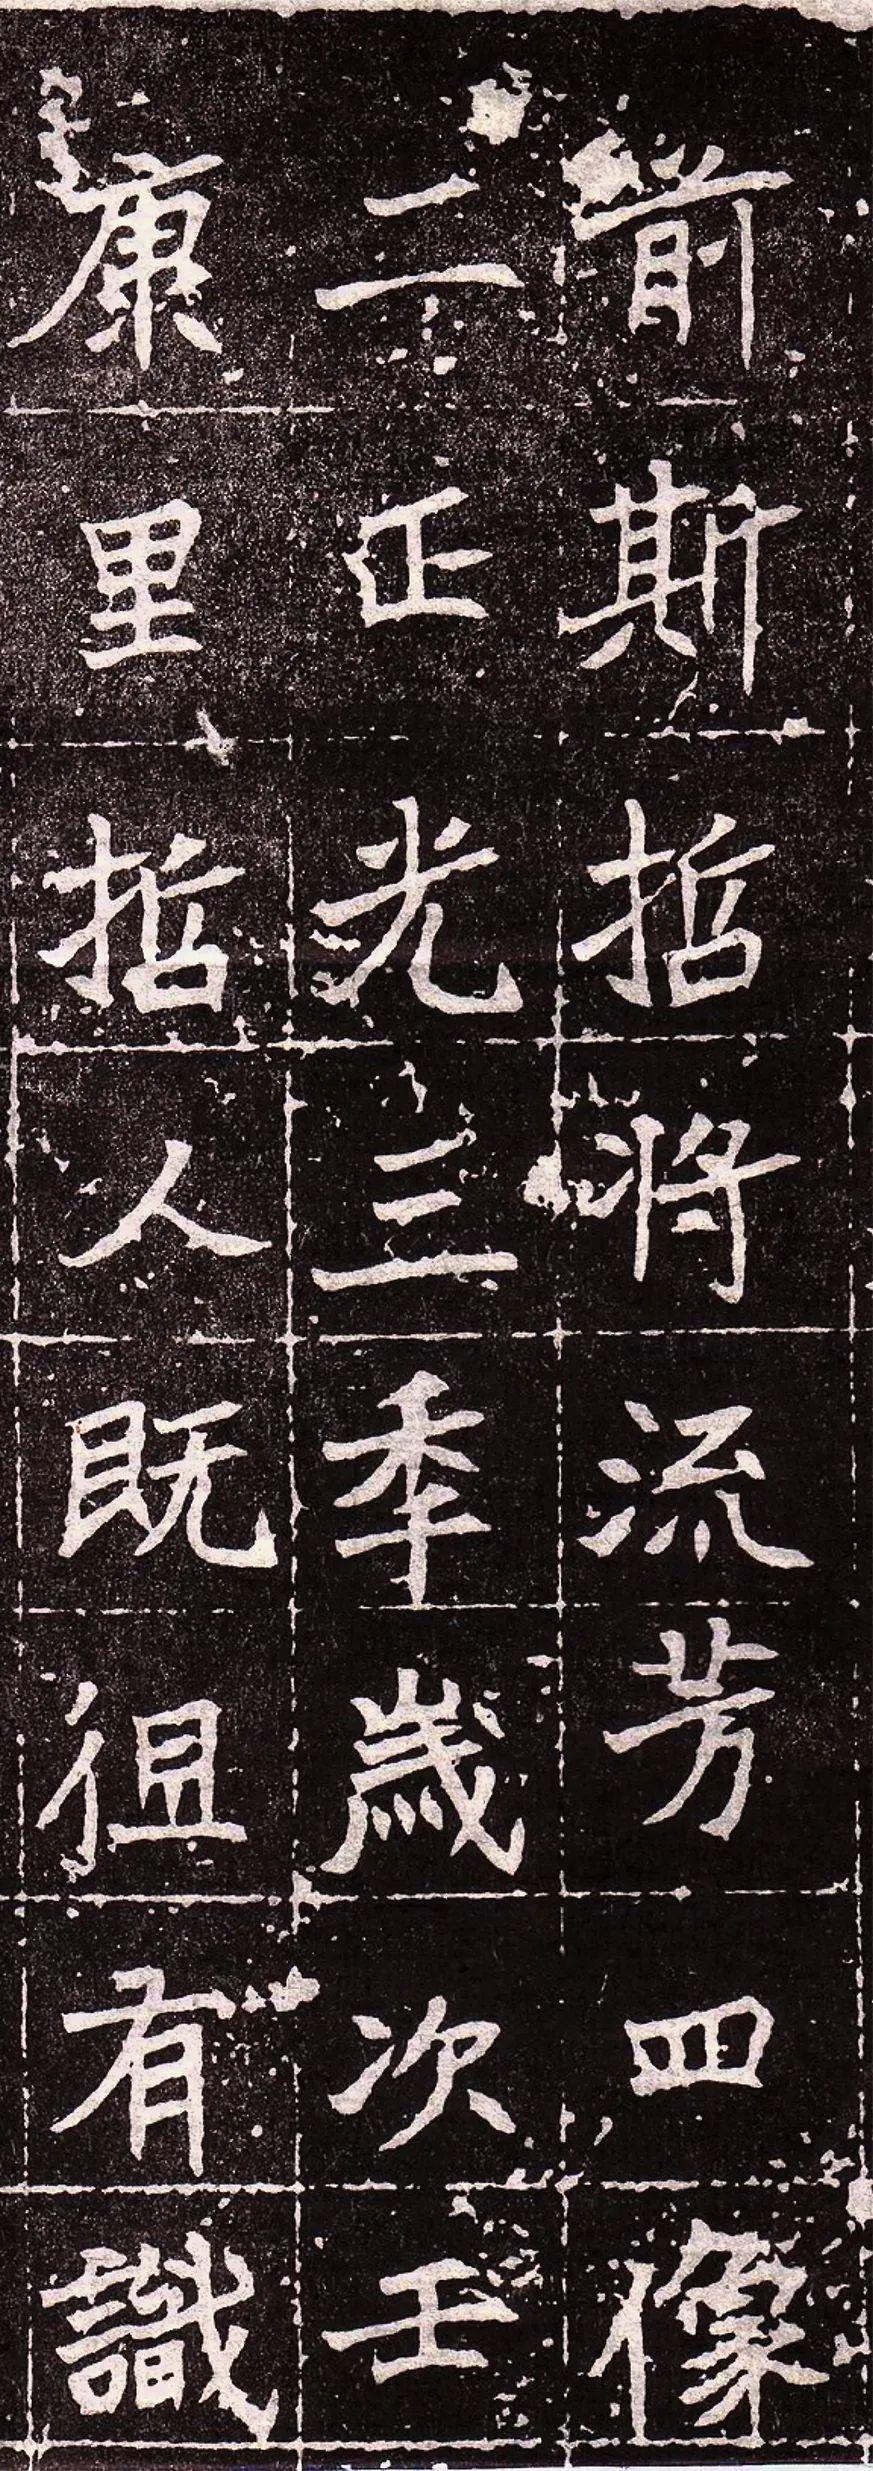 前斯哲將流芳四像
二正光三季歲次壬
康里哲人既徂有識